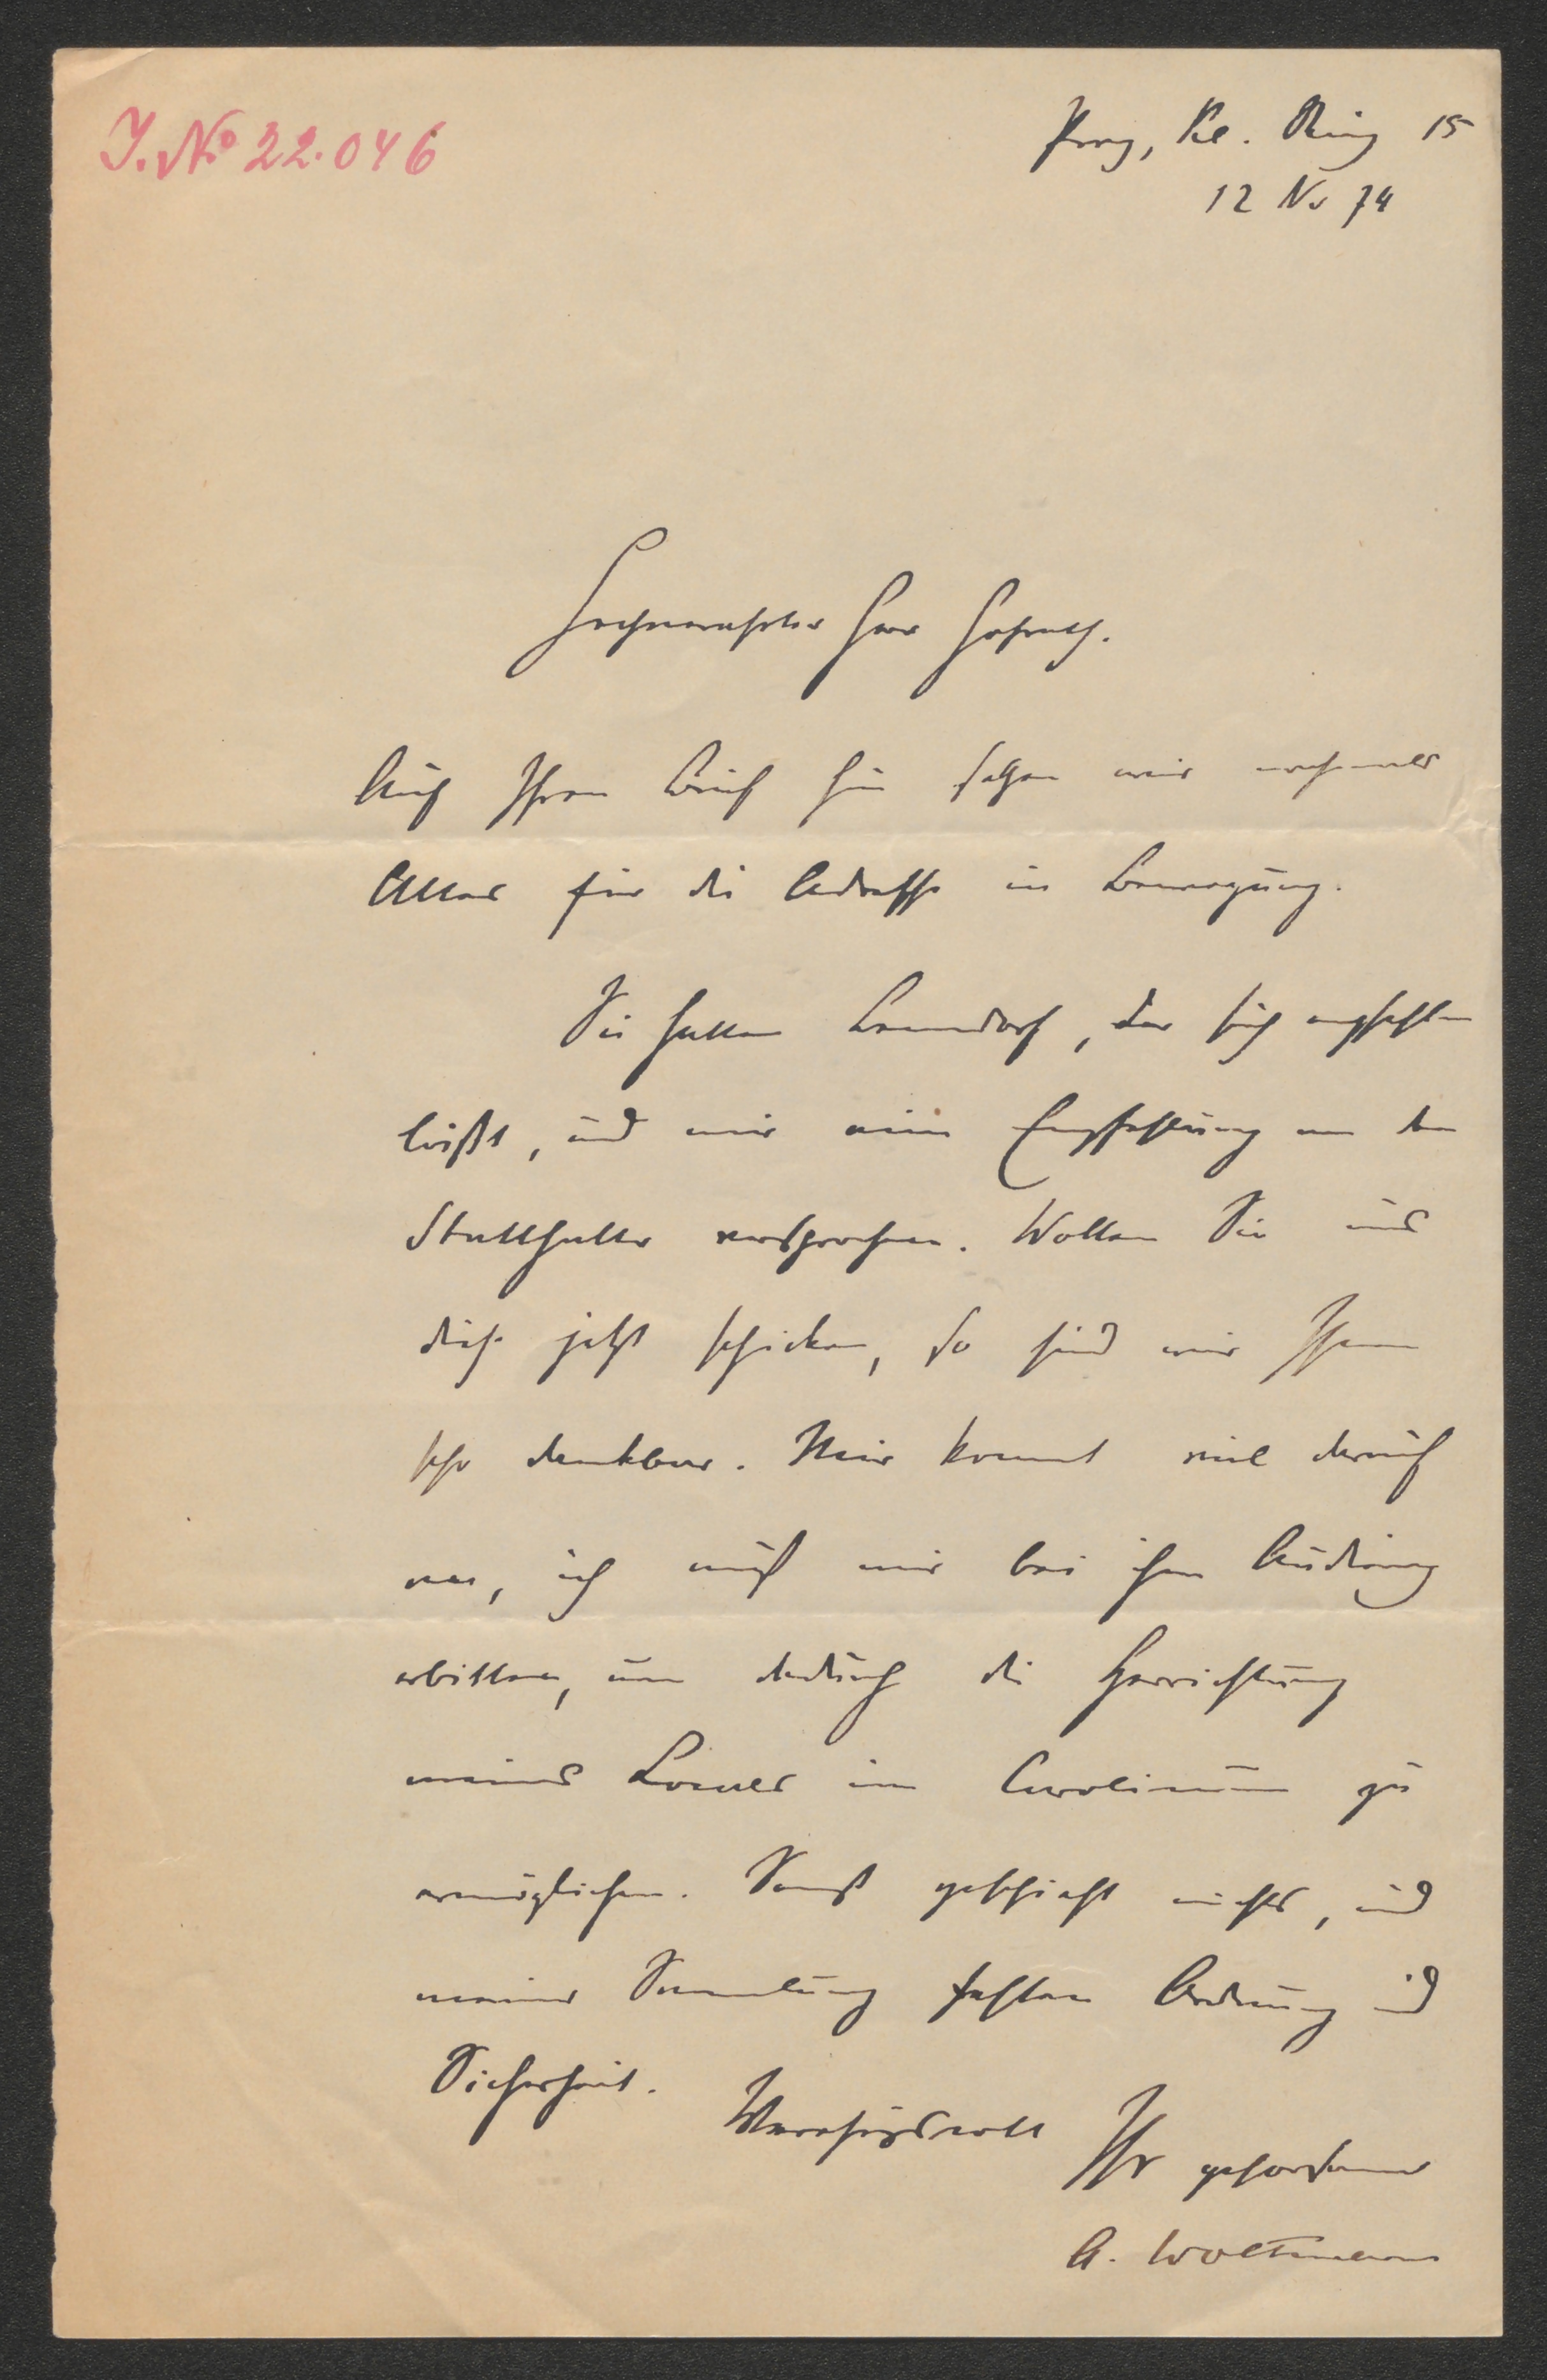 J. No 22.046
Prag, Kl. Ring 15
12 Nv 74
Hochverehrter Herr Hofrath.
Auf Ihren Brief hin setzen wir nochmals
Alles für die Adresse in Bewegung.
Sie hatten Benndorf, der sich empfehlen
läßt, und mir eine Empfehlung an den
Statthalter versprochen. Wollen Sie uns
diese jetzt schicken, so sind wir Ihnen
sehr dankbar. Mir kommt viel darauf
an, ich muß mir bei ihm Audienz
erbitten, um dadurch die Herrichtung
meines Locales im Carolinum zu
ermöglichen. Sonst geschieht nichts, und
meiner Sammlung fehlen Ordnung und
Sicherheit.
Verehrungsvoll
Ihr gehorsamer
A. Woltmann